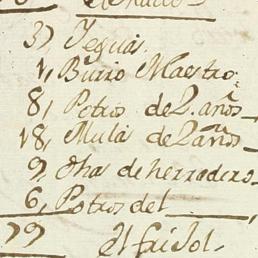 37, Yeguas.
1, Burro Maestro.
8, Potros de 2. años
18, Mulas de 2 años
9, Dhas de herradero
6, Potros del
79